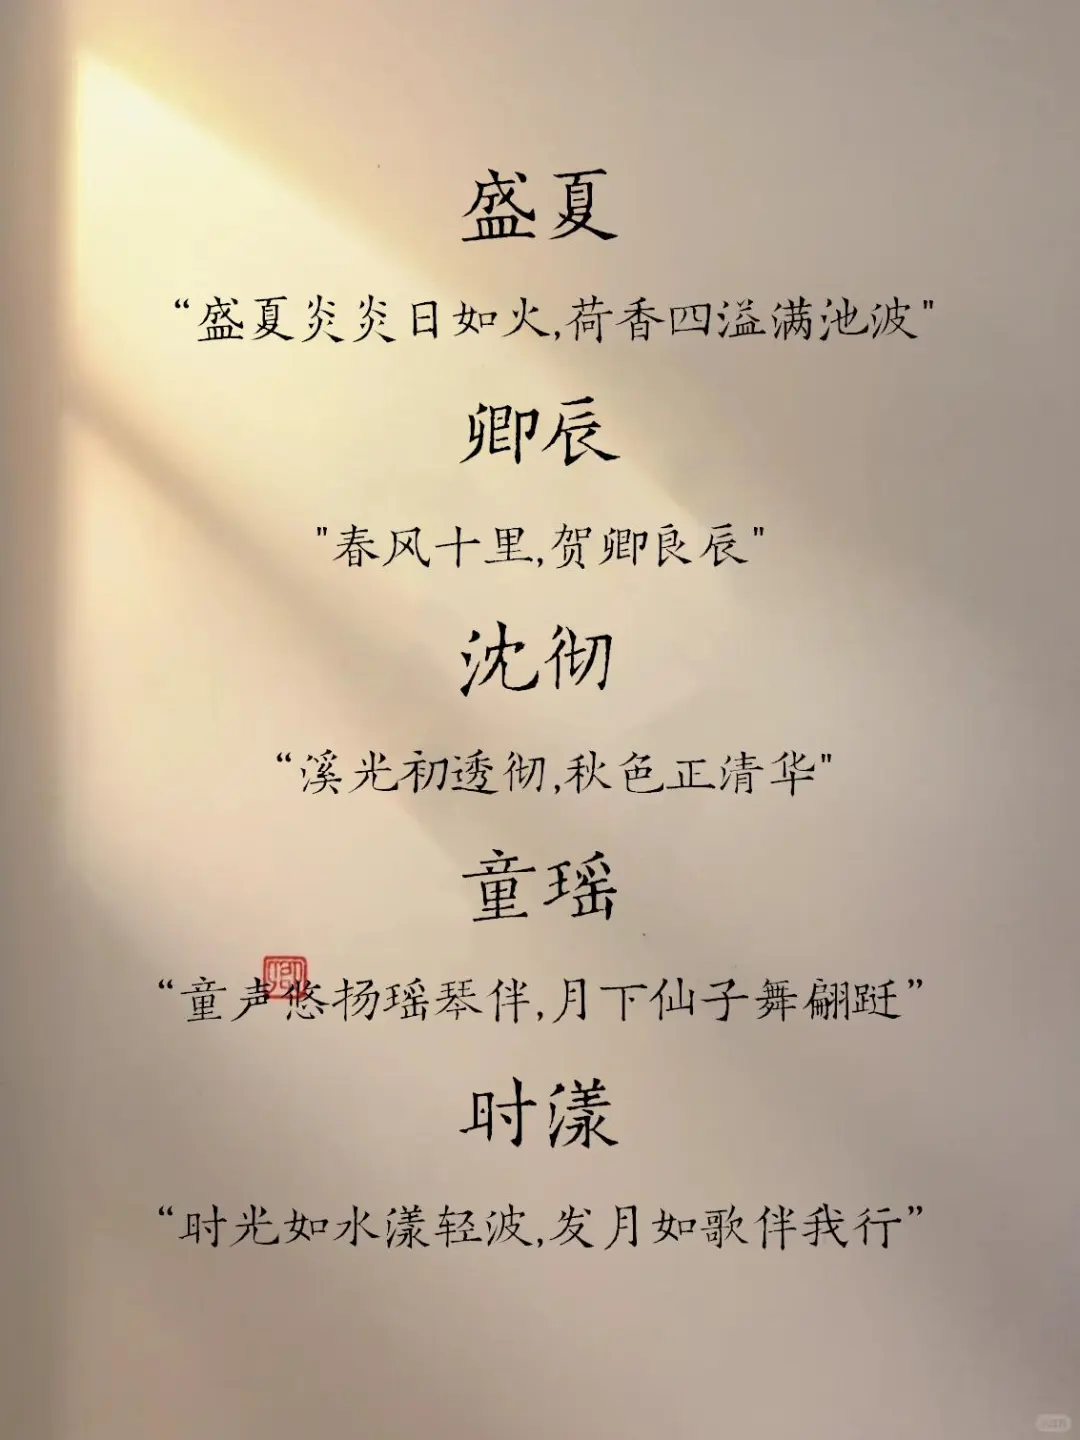 盛夏
“盛夏炎炎日如火,荷香四溢满池波"
卿辰
"春风十里,贺卿良辰"
沈彻
“溪光初透彻,秋色正清华"
童瑶
“童声悠扬瑶琴伴,月下仙子舞翩跹”
卿
时漾
“时光如水漾轻波,发月如歌伴我行”
小红书